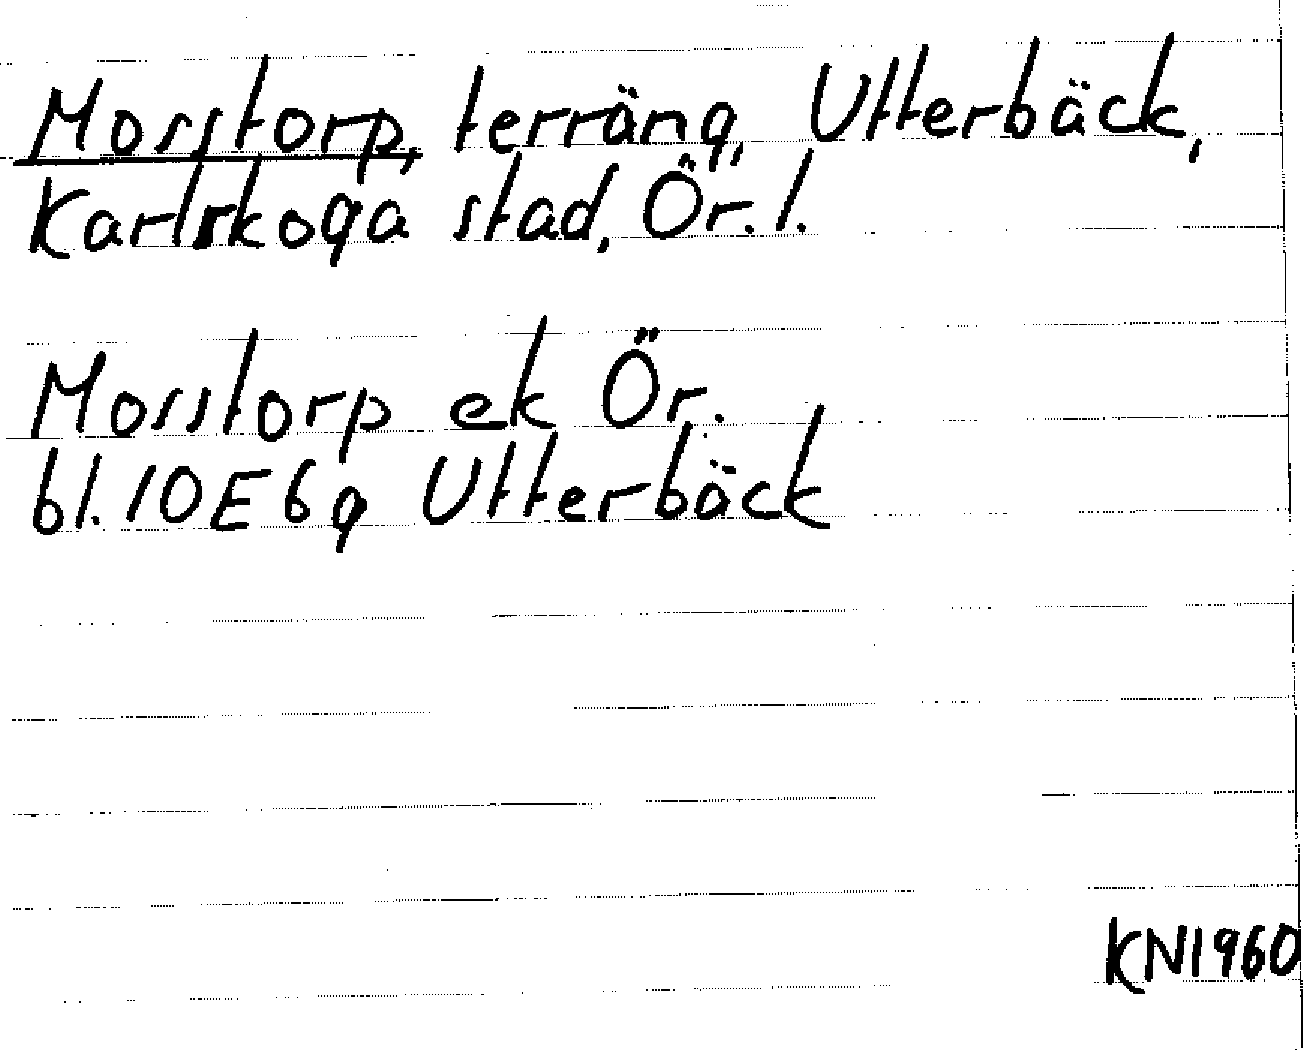 Mosstorp, terräng, Utterbäck,
Karlskoga stad, Ör. l.
Mosstorp ek Ör.
bl. 10E6g Utterbäck
KN1960